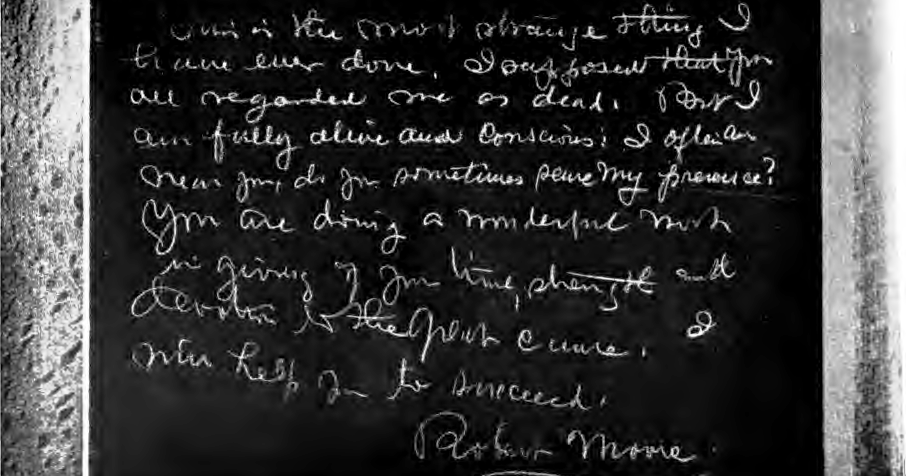 This is the most strange thing I
have ever done. I supposed that you
all regarded me as dead. But I
am fully alive and conscious: I often am
near you, do you sometimes sense my presence?
You are doing a wonderful work
in giving of your time, strength and
devotion to the great cause. I
will help you to succeed.
Robert Moore